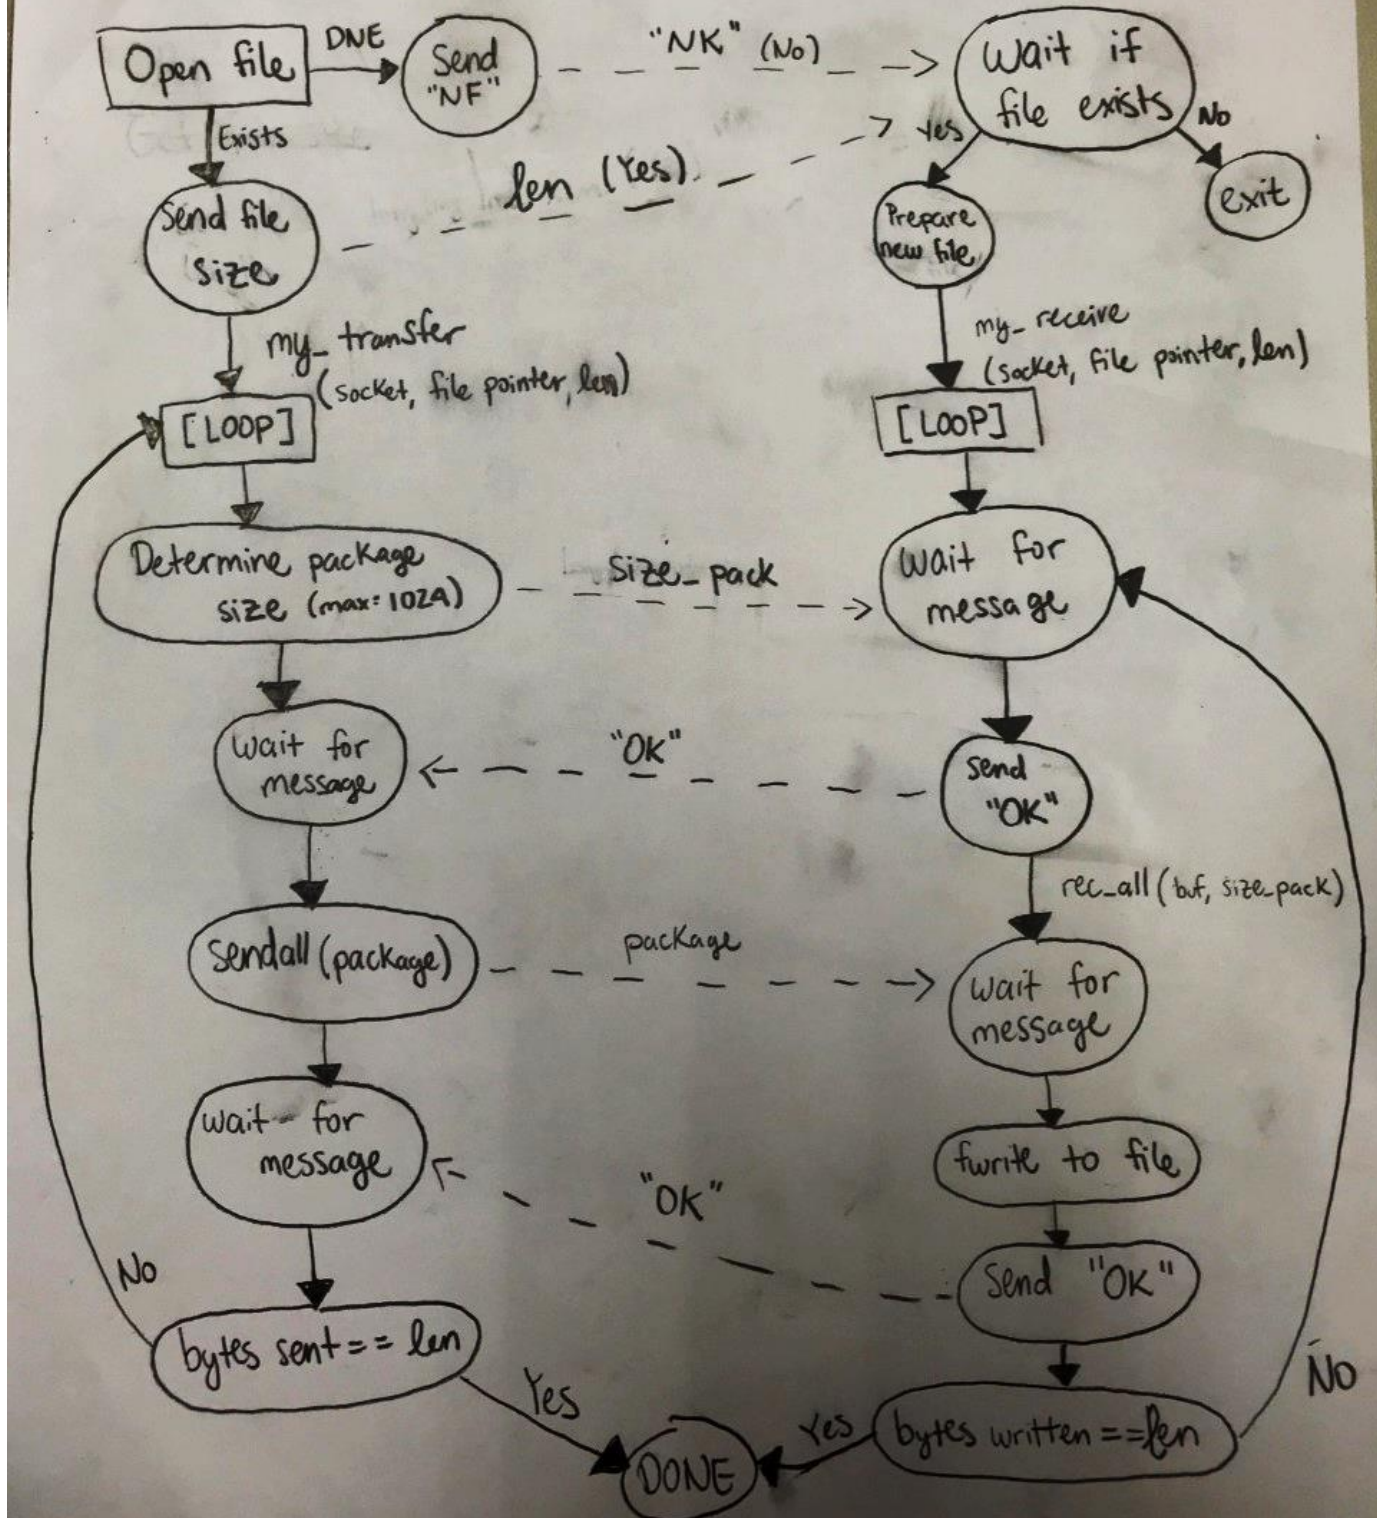 Open file
DNE
Send
"NF"
"NK" (No)
Wait if
file exists
Exists
Yes
No
exit
len (Yes)
Send file
size
Prepare
new file
my_transfer
(socket, file pointer, len)
my_receive
(socket, file pointer, len)
[LOOP]
[LOOP]
Determine package
size (max=1024)
size_pack
Wait for
message
Wait for
message
"OK"
Send
"OK"
rec_all (buf, size_pack)
Sendall (package)
package
Wait for
message
Wait for
message
fwrite to file
"OK"
Send "OK"
No
No
bytes sent == len
Yes
Yes
bytes written ==len
DONE